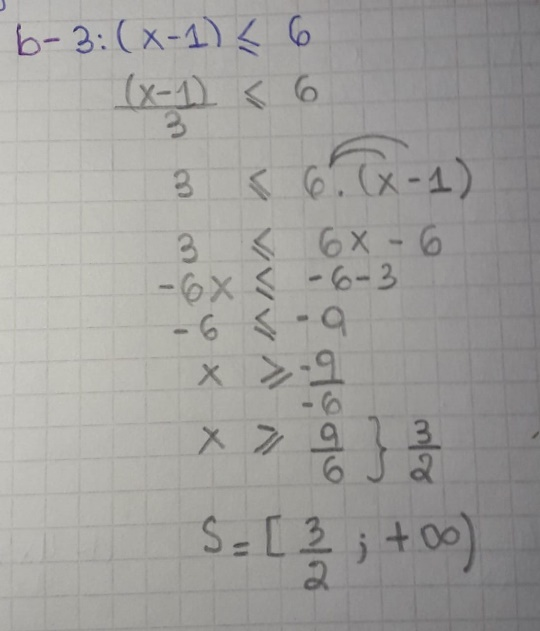 b- 3:(x-1) ≤ 6
(x-1)/3 ≤ 6
3 ≤ 6.(x-1)
3 ≤ 6x - 6
-6x ≤ -6-3
-6 ≤ -9
x ≥ -9/-6
x ≥ 9/6 } 3/2
S = [ 3/2 ; +∞)